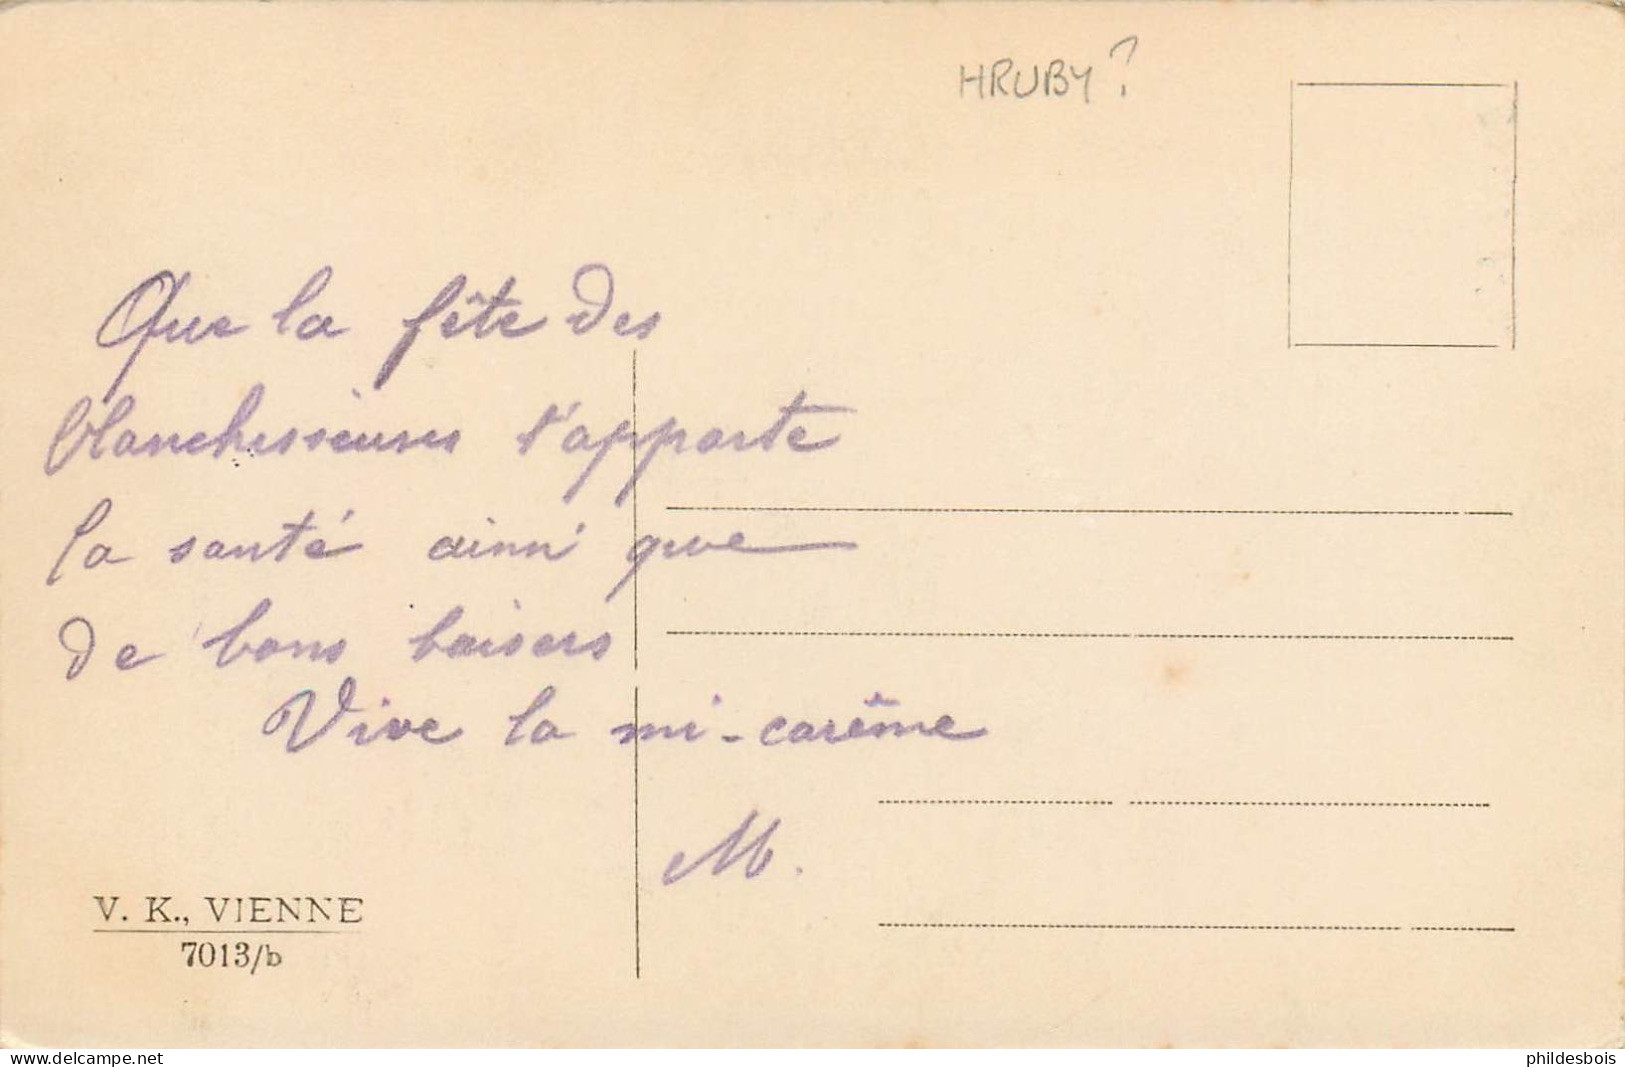 HRUBY?
Que la fête des
blanchisseuses t'apporte
la santé ainsi que
de bons baisers
Vive la mi-carême
M.
V. K., VIENNE
7013/b
www.delcampe.net
phildesbois